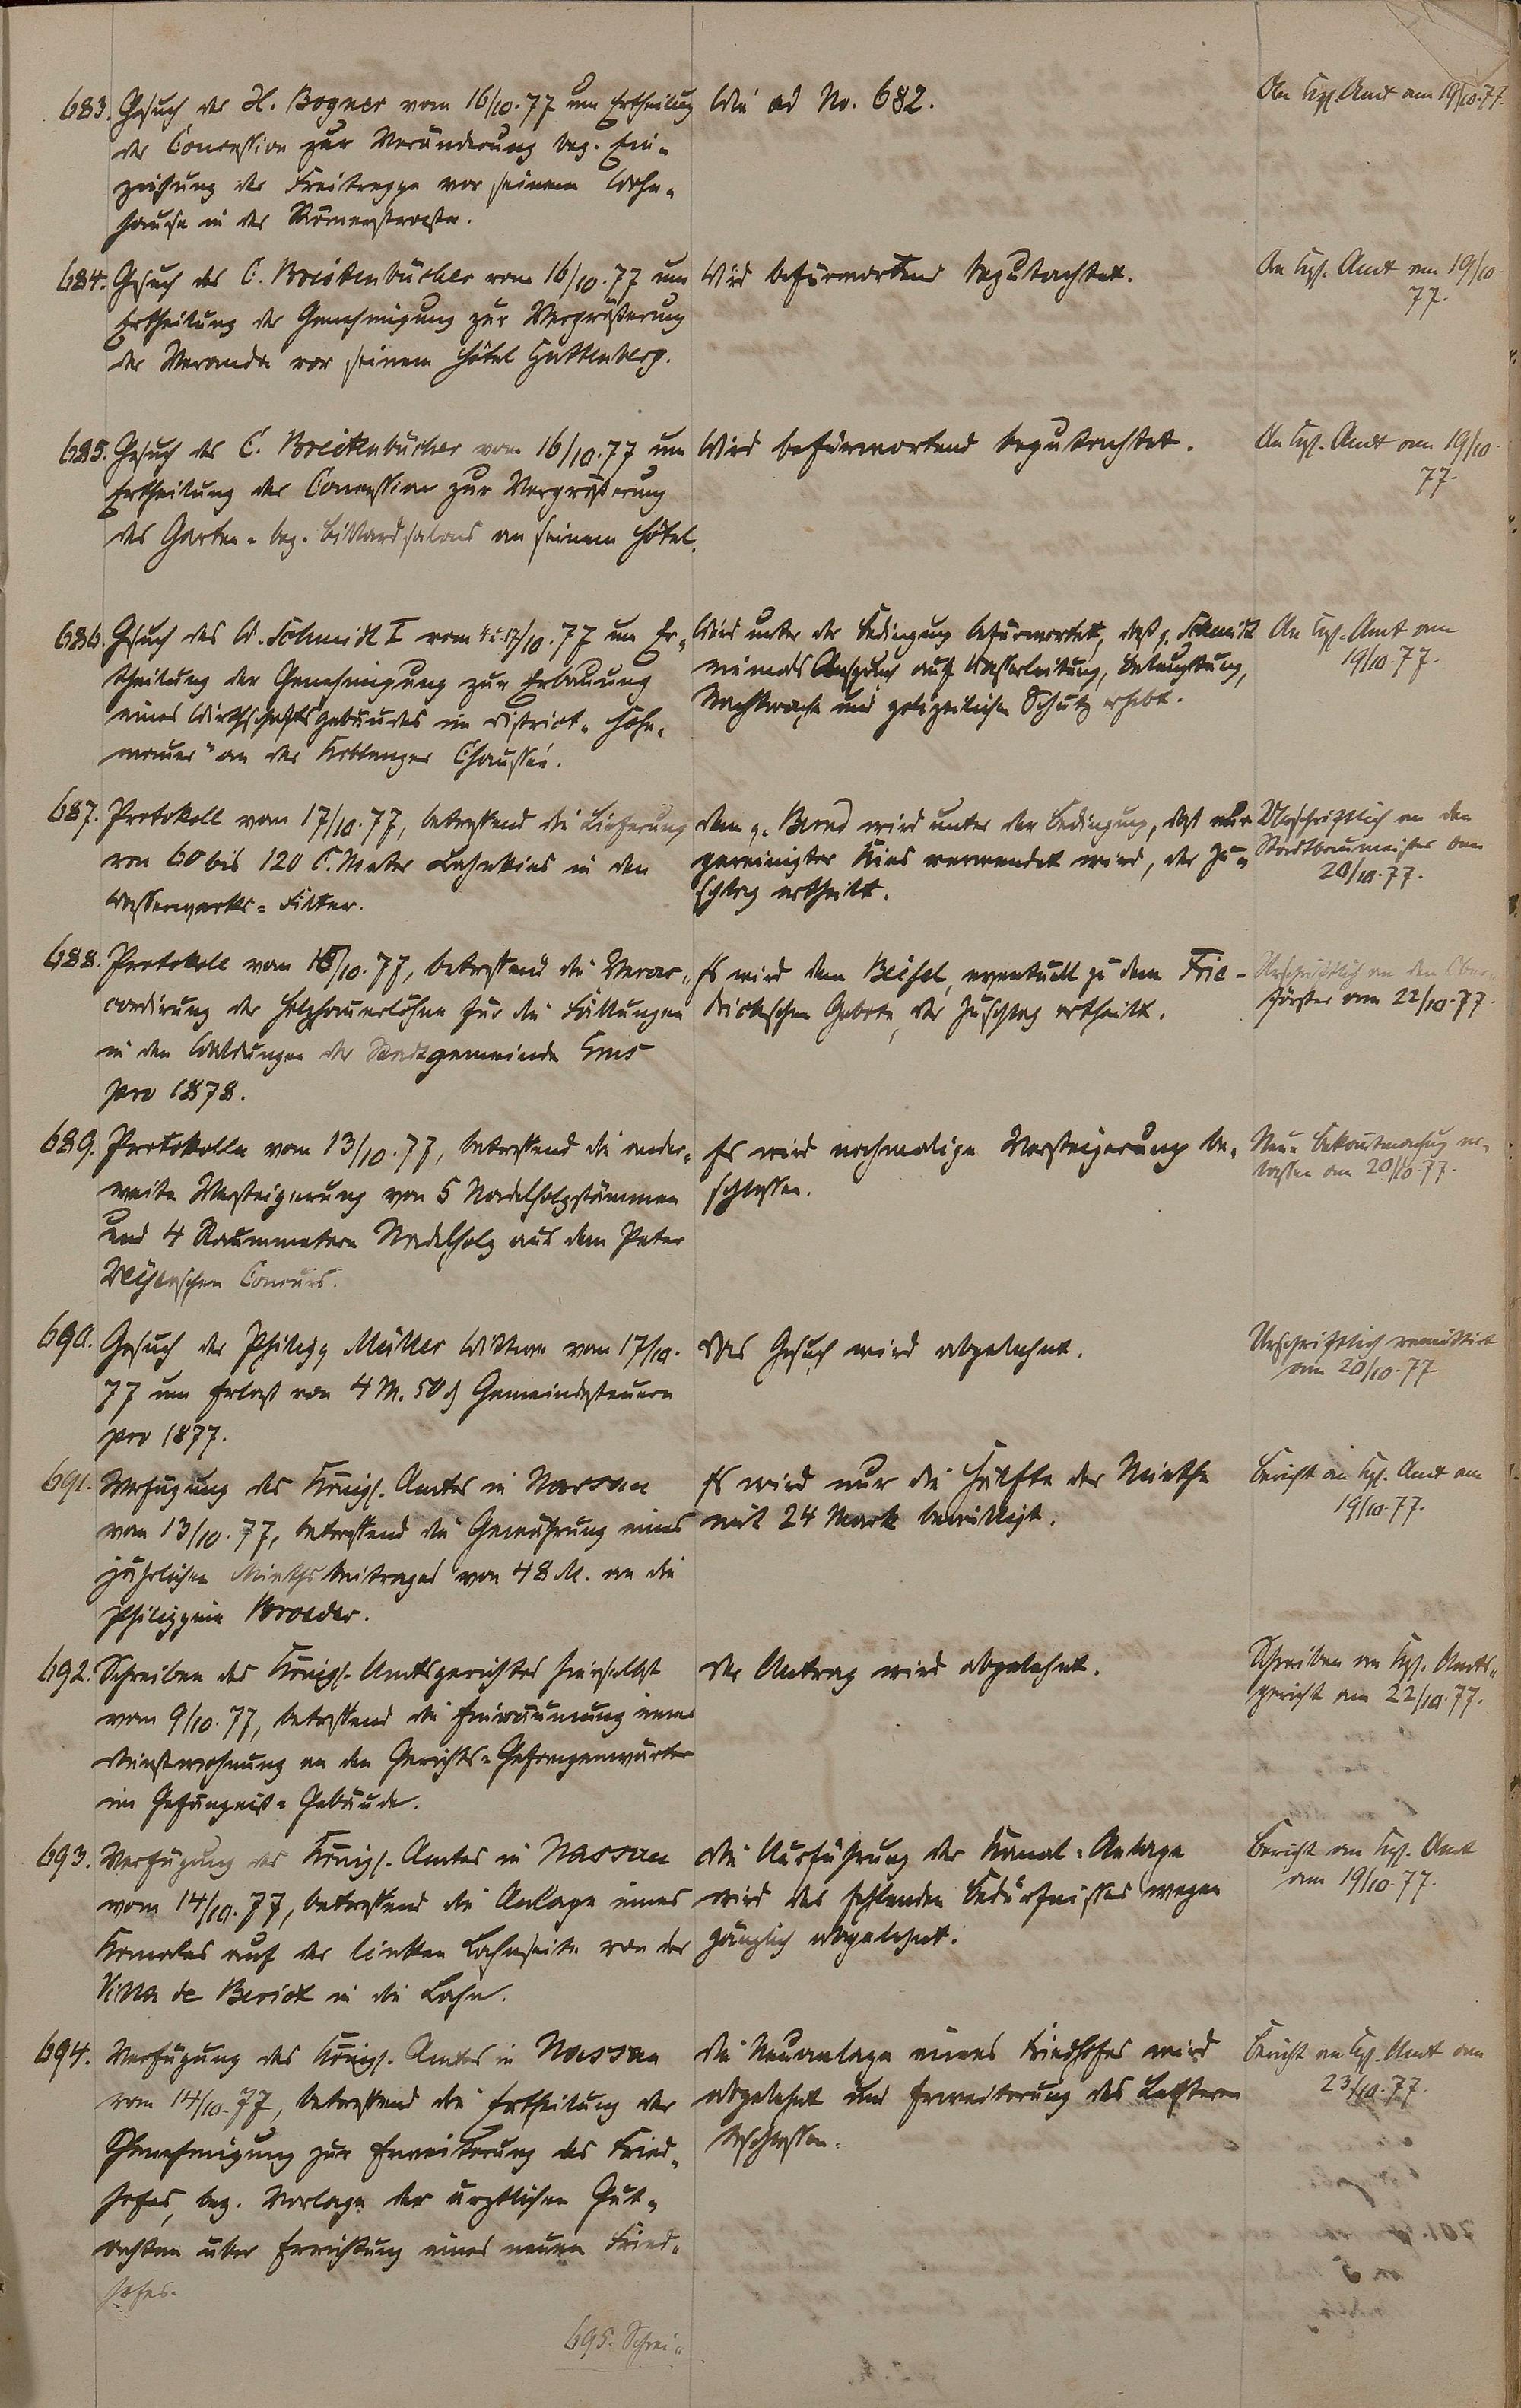 683. Gesuch des H. Bogner vom 16/10. 77 um Ertheilung
der Concession zur Veränderung bez. Ein-
ziehung der Freitreppe vor seinem Wohn-
hause in der Römerstrasse.
Wie ad No. 682.
An Kgl. Amt am 19/10. 77.
684. Gesuch des C. Breitenbücher vom 16/10. 77 um
Ertheilung der Genehmigung zur Vergrößerung
der Veranda vor seinem Hôtel Guttenberg.
Wird befürwortend begutachtet.
An Kgl. Amt am 19/10.
77.
685. Gesuch des C. Breitenbücher vom 16/10. 77 um
Ertheilung der Concession zur Vergrößerung
des Garten- bez. Billardsalons an seinem Hôtel.
Wird befürwortend begutachtet.
An Kgl. Amt am 19/10.
77.
686. Gesuch des W. Schmidt I vom 17/10. 77 um Er-
theilung der Genehmigung zur Erbauung
eines Wirthschaftsgebäudes im District "Hohe-
mauer" an der Koblenzer Chaussée.
Wird unter der Bedingung befürwortet, daß p. Schmidt
niemals Anspruch auf Wasserleitung, Beleuchtung,
Nachtwache und polizeilichen Schutz erhebt.
An Kgl. Amt am
19/10. 77.
687. Protokoll vom 17/10. 77, betreffend die Lieferung
von 60 bis 120 C. Meter Lahnkies in den
Wasserwerks-Filter.
Dem p. Bernd wird unter der Bedingung, daß nur
gereinigter Kies verwendet wird, der Zu-
schlag ertheilt.
Urschriftlich an den
Stadtbaumeister am
20/10. 77.
688. Protokoll vom 18/10. 77, betreffend die Verac-
cordirung der Holzhauerlöhne für die Fällungen
in den Waldungen der Stadtgemeinde Ems
pro 1878.
Es wird dem Beisel, eventuell zu dem Frie-
drichschen Gebote, der Zuschlag ertheilt.
Urschriftlich an den Ober-
förster am 22/10. 77.
689. Protokolle vom 13/10. 77, betreffend die ander-
weite Versteigerung von 5 Nadelholzstämmen
und 4 Raummetern Nadelholz aus dem Peter
schen Concurs.
Es wird nochmalige Versteigerung be-
schlossen.
Neue Bekanntmachung er-
lassen am 20/10. 77.
690. Gesuch der Philipp Müller Wittwe vom 17/10.
77 um Erlaß von 4 M. 50 ₰ Gemeindesteuern
pro 1877.
Das Gesuch wird abgelehnt.
Urschriftlich remittirt
am 20/10. 77.
691. Verfügung des Königl. Amtes in Nassau
vom 13/10. 77, betreffend die Gewährung eines
jährlichen Miethsbeitrages von 48 M. an die
Philippine Broeder.
Es wird nur die Hälfte der Miethe
mit 24 Mark bewilligt.
Bericht an Kgl. Amt am
19/10. 77.
692. Schreiben des Königl. Amtsgerichtes hierselbst
vom 9/10. 77, betreffend die Einräumung einer
Dienstwohnung an den Gerichts-Gefangenwärter
im Gefängniß-Gebäude.
Der Antrag wird abgelehnt.
Schreiben an Kgl. Amts-
gericht am 22/10. 77.
693. Verfügung des Königl. Amtes in Nassau
vom 14/10. 77, betreffend die Anlage eines
Kanales auf der linken Lahnseite von der
Villa de Beriot in die Lahn.
Die Ausführung der Kanal-Anlage
wird des fehlenden Bedürfnisses wegen
gänzlich abgelehnt.
Bericht an Kgl. Amt
am 19/10. 77.
694. Verfügung des Königl. Amtes in Nassau
vom 14/10. 77, betreffend die Ertheilung der
Genehmigung zur Erweiterung des Fried-
hofes, bez. Vorlage der ärztlichen Gut-
achten über Errichtung eines neuen Fried-
hofes.
Die Neuanlage eines Friedhofes wird
abgelehnt und Erweiterung des Letzteren
beschlossen.
Bericht an Kgl. Amt am
23/10. 77.
695. Schrei-